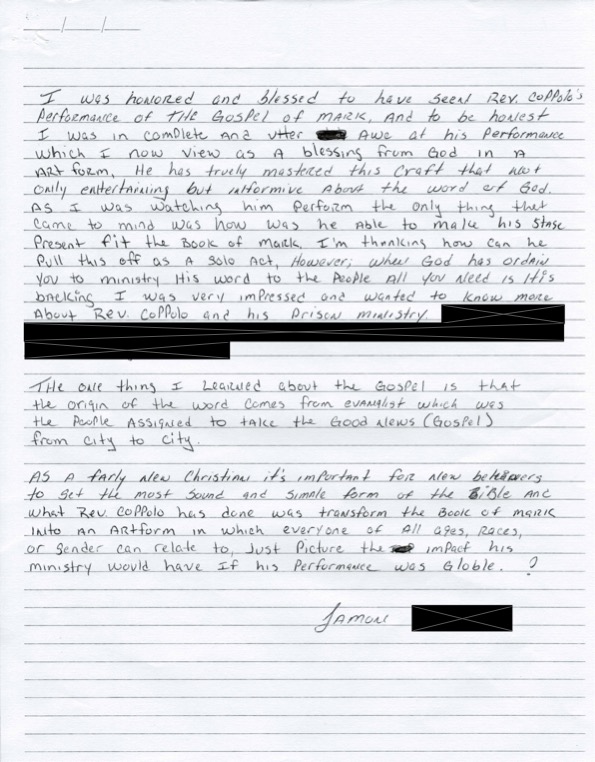 I was honored and blessed to have seen Rev. Coppolo's
Performance of THE Gospel of MARK, And to be honest
I was in complete And utter Awe at his Performance
which I now view as A blessing from God in A
ART form. He has truely mastered this Craft that not
only entertaining but informive About the word of God.
As I was watching him Perform the only thing that
came to mind was how was he Able to make his Stage
Present fit the Book of Mark. I'm thanking how can he
Pull this off as A Solo Act, However; when God has ordain
You to ministry His word to the People All You need is His
backing. I was very impressed and wanted to know more
About Rev. Coppolo and his Prison ministry.
THE one thing I Learned about the Gospel is that
the origin of the word Comes from evanglist which was
the People Assigned to take the Good News (Gospel)
from City to City.
As A farly New Christian it's important for New believers
to get the most Sound and Simple form of the Bible And
what Rev. Coppolo has done was transform the Book of Mark
Into an ARTform in which everyone of All ages, Races,
or Gender can relate to, Just Picture the impact his
ministry would have If his Performance was Globle. ?
Jamone